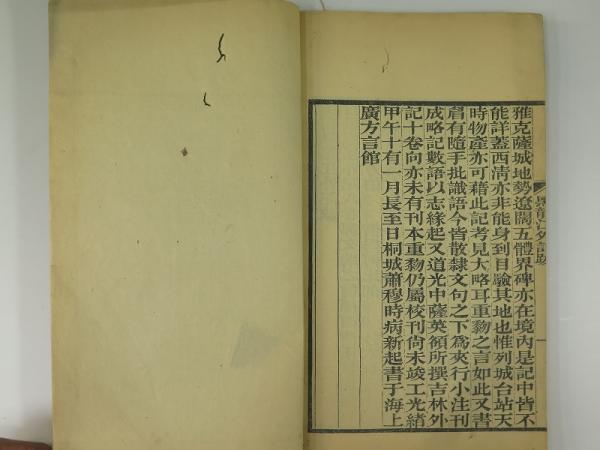 雅克薩城地勢遼闊五體界碑亦在境內是記中皆不
能詳蓋西清亦非能身到目驗其地也惟列城台站天
時物產亦可藉此記考見大略耳重黝之言如此又書
眉有隨手批識語今皆散隸文句之下爲夾行小注刊
成略記數語以志緣起又道光中薩英額所撰吉林外
記十卷向亦未有刊本重黝仍屬校刊尙未竣工光緒
甲午十有一月長至日桐城蕭穆時病新起書于海上
廣方言館
一